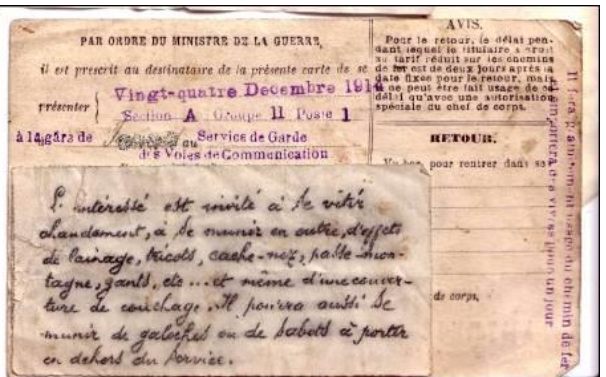 PAR ORDRE DU MINISTRE DE LA GUERRE,
il est prescrit au destinataire de la présente carte de se
présenter Vingt-quatre Decembre 1914
Section A Groupe 11 Poste 1
à la gare de au Service de Garde
des Voies de Communication
L'intéressé est invité à se vêtir
chaudement, à se munir en outre, d'effets
de lainage, tricots, cache-nez, passe-mon-
tagne, gants, etc... et même d'une couver-
ture de couchage. Il pourra aussi se
munir de galoches ou de sabots à porter
en dehors du service.
AVIS.
Pour le retour, le délai pen-
dant lequel le titulaire a droit
au tarif réduit sur les chemins
de fer est de deux jours après la
date fixée pour le retour, mais
il ne peut être fait usage de ce
délai qu'avec une autorisation
spéciale du chef de corps.
RETOUR.
pour rentrer dans ses
de corps,
Il fera gratuitement usage du chemin de fer
et emportera des vivres pour un jour